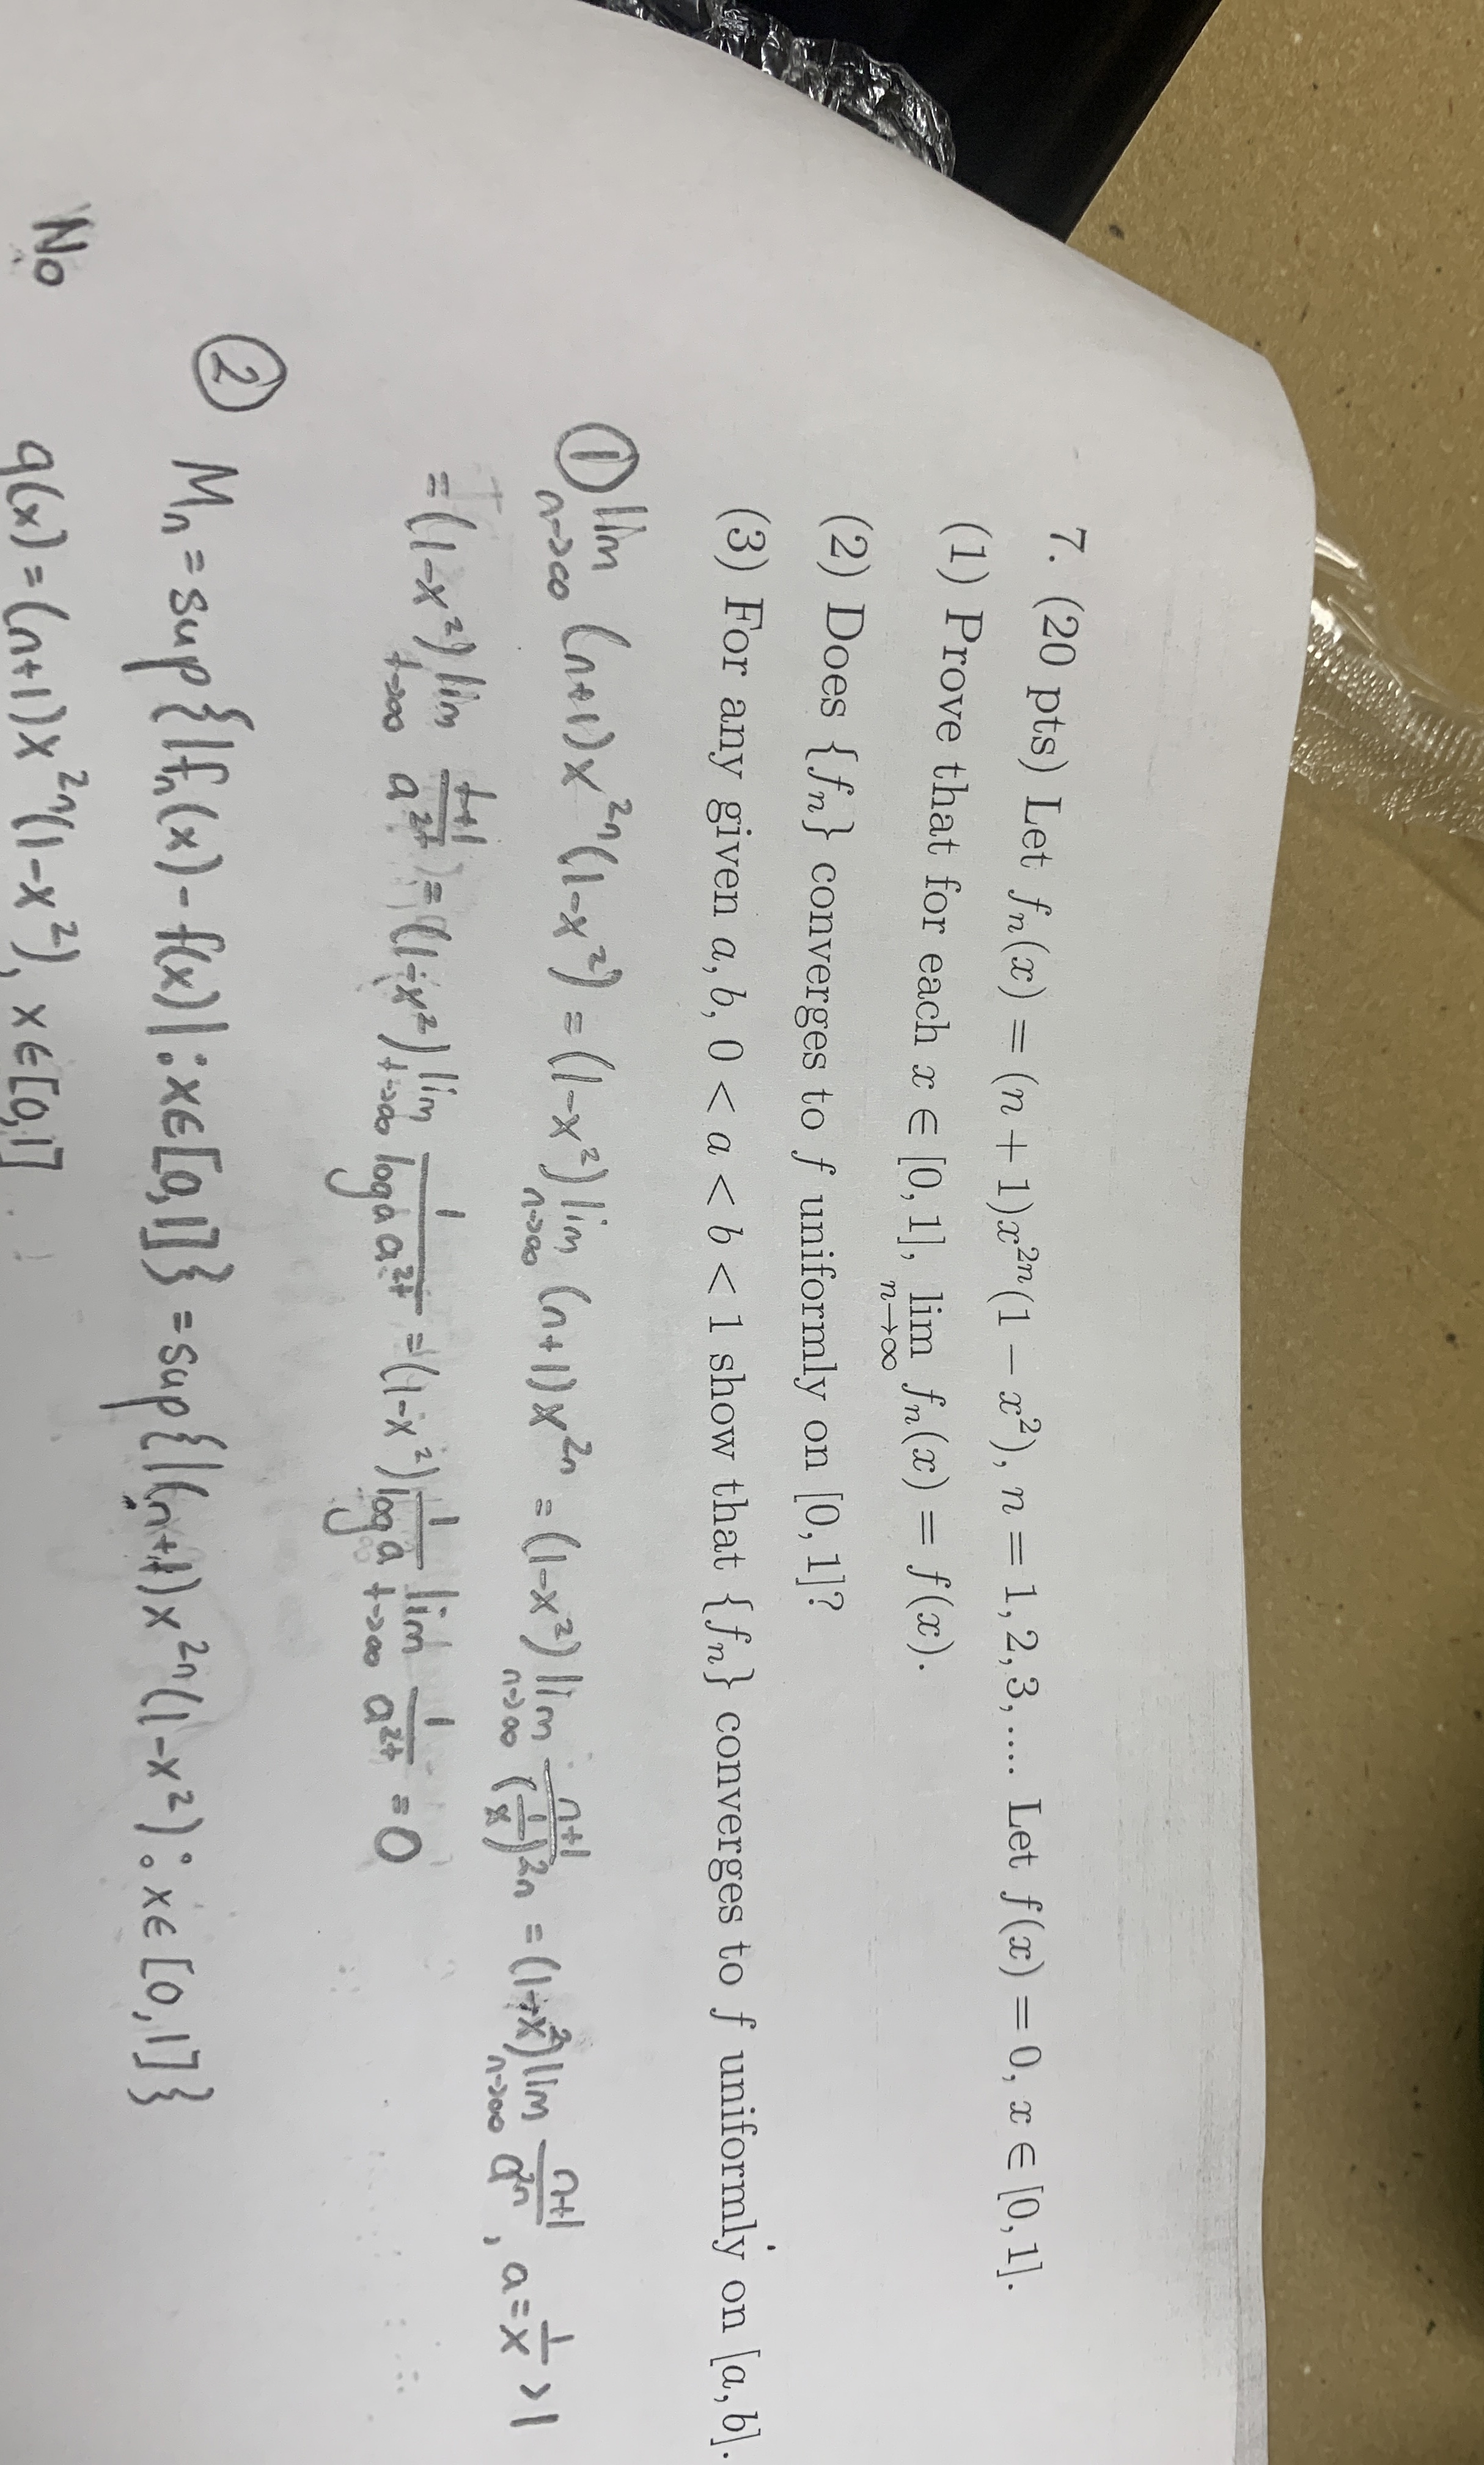 7. (20 pts) Let fₙ(x) = (n + 1)x²ⁿ(1 − x²), n = 1, 2, 3, .... Let f(x) = 0, x ∈ [0, 1].
(1) Prove that for each x ∈ [0, 1], lim_{n→∞} fₙ(x) = f(x).
(2) Does {fₙ} converges to f uniformly on [0, 1]?
(3) For any given a, b, 0 < a < b < 1 show that {fₙ} converges to f uniformly on [a, b].
① lim_{n→∞} (n+1)x²ⁿ(1−x²) = (1−x²) lim_{n→∞} (n+1)x²ⁿ = (1−x²) lim_{n→∞} (n+1)/(1/x)²ⁿ = (1−x²) lim_{n→∞} (n+1)/a²ⁿ, a = 1/x > 1
= (1−x²) lim_{t→∞} (t+1)/a²ᵗ = (1−x²) lim_{t→∞} 1/(log a a²ᵗ) = (1−x²) 1/(log a) lim_{t→∞} 1/a²ᵗ = 0
② Mₙ = sup{|fₙ(x) − f(x)| : x∈[0,1]} = sup{|(n+1)x²ⁿ(1−x²) : x∈[0,1]}
No q(x) = (n+1)x²ⁿ(1−x²), x∈[0,1]